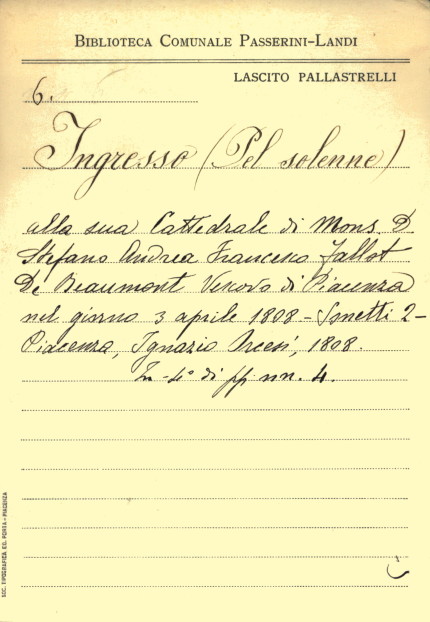 BIBLIOTECA COMUNALE PASSERINI-LANDI
LASCITO PALLASTRELLI
6.
Ingresso (Pel solenne)
alla sua Cattedrale di Mons. D.
Stefano Andrea Francesco Fallot
De Beaumont Vescovo di Piacenza
nel giorno 3 aprile 1808 - Sonetti 2 -
Piacenza, Ignazio Orcesi, 1808.
In-4° di pp. nn. 4.
SOC. TIPOGRAFICA ED. PORTA - PIACENZA